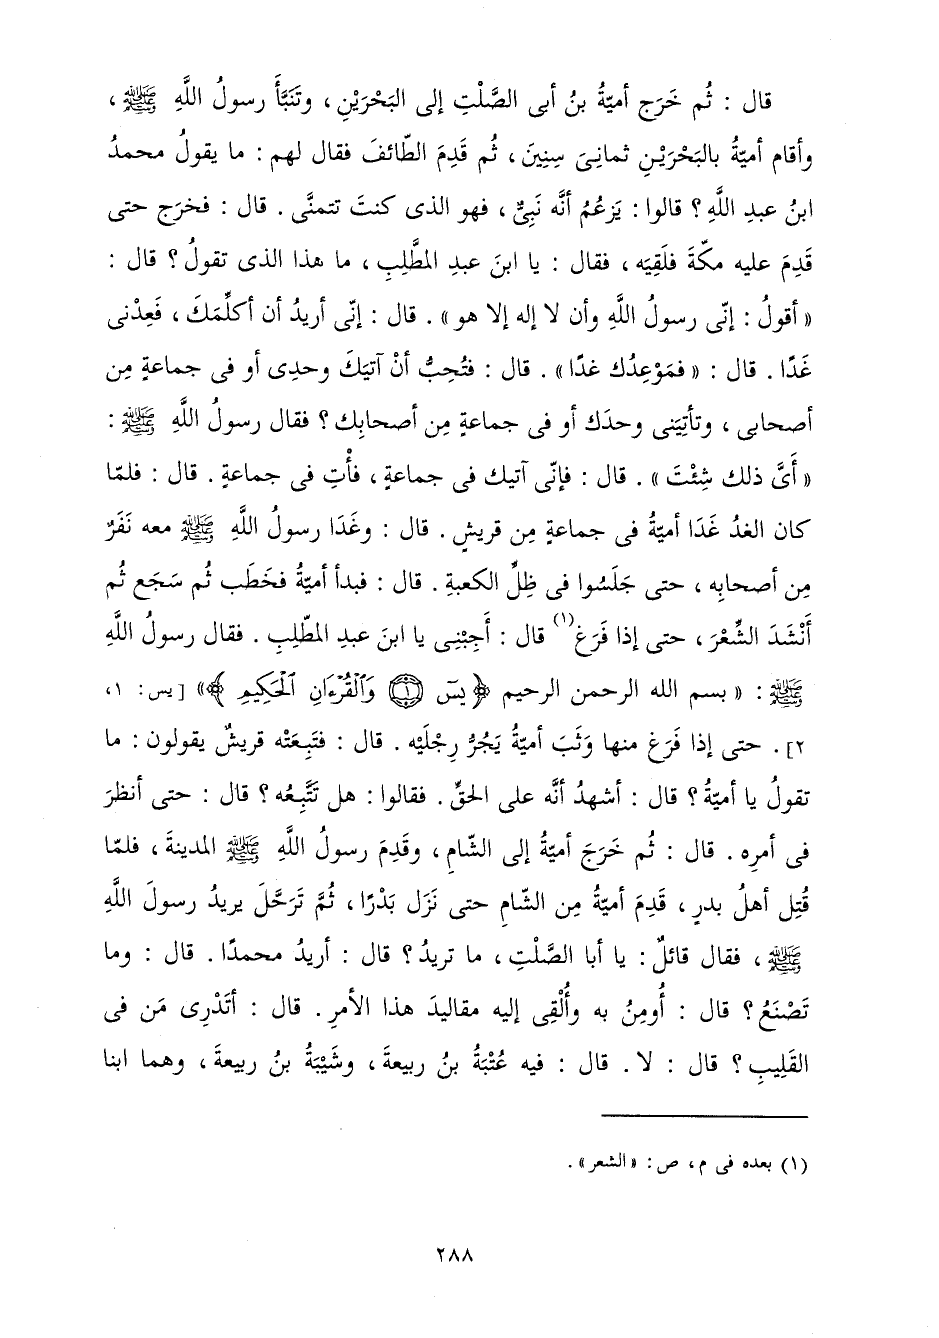 قال : ثُم خَرَج أميّةُ بنُ أبى الصَّلْتِ إلى البَحْرَيْنِ ، وتَنَبَّأَ رسولُ اللَّهِ ﷺ ،
وأقام أميّةُ بالبَحْرَيْنِ ثمانىَ سِنِينَ ، ثُم قَدِمَ الطّائفَ فقال لهم : ما يقولُ محمدُ
ابنُ عبدِ اللَّهِ ؟ قالوا : يَزعُمُ أنَّه نَبِىٌّ ، فهو الذى كنتَ تتمنَّى . قال : فخرَج حتى
قَدِمَ عليه مكّةَ فلَقِيَه ، فقال : يا ابنَ عبدِ المطَّلِبِ ، ما هذا الذى تقولُ ؟ قال :
« أقولُ : إنّى رسولُ اللَّهِ وأن لا إله إلا هو » . قال : إنّى أريدُ أن أكلِّمَكَ ، فَعِدْنى
غَدًا . قال : « فمَوْعِدُك غدًا » . قال : فتُحِبُّ أنْ آتيَكَ وحدِى أو فى جماعةٍ مِن
أصحابى ، وتأتِيَنى وحدَك أو فى جماعةٍ مِن أصحابِك ؟ فقال رسولُ اللَّهِ ﷺ :
« أَىَّ ذلك شِئْتَ » . قال : فإنّى آتيك فى جماعةٍ ، فأْتِ فى جماعةٍ . قال : فلمّا
كان الغدُ غَدَا أميّةُ فى جماعةٍ مِن قريشٍ . قال : وغَدَا رسولُ اللَّهِ ﷺ معه نَفَرٌ
مِن أصحابِه ، حتى جَلَسُوا فى ظِلِّ الكعبةِ . قال : فبدأ أميّةُ فخَطَب ثُم سَجَع ثُم
أَنْشَدَ الشِّعْرَ ، حتى إذا فَرَغ(١) قال : أَجِبْنِى يا ابنَ عبدِ المطّلِبِ . فقال رسولُ اللَّهِ
ﷺ : « بسم الله الرحمن الرحيم ﴿يسٓ ۝١ وَٱلْقُرْءَانِ ٱلْحَكِيمِ﴾» [يس: ١،
٢] . حتى إذا فَرَغ منها وَثَبَ أميّةُ يَجُرُّ رِجْلَيْه . قال : فتَبِعَتْه قريشٌ يقولون : ما
تقولُ يا أميّةُ ؟ قال : أشهدُ أنَّه على الحقِّ . فقالوا : هل تَتَّبِعُه ؟ قال : حتى أنظرَ
فى أمرِه . قال : ثُم خَرَجَ أميّةُ إلى الشّامِ ، وقَدِمَ رسولُ اللَّهِ ﷺ المدينةَ ، فلمّا
قُتِل أهلُ بدرٍ ، قَدِمَ أميّةُ مِن الشّامِ حتى نَزَل بَدْرًا ، ثُمَّ تَرَحَّلَ يريدُ رسولَ اللَّهِ
ﷺ ، فقال قائلٌ : يا أبا الصَّلْتِ ، ما تريدُ ؟ قال : أريدُ محمدًا . قال : وما
تَصْنَعُ ؟ قال : أُومِنُ به وأُلْقِى إليه مقاليدَ هذا الأمرِ . قال : أتَدْرِى مَن فى
القَلِيبِ ؟ قال : لا . قال : فيه عُتْبةُ بنُ ربيعةَ ، وشَيْبَةُ بنُ ربيعةَ ، وهما ابنا
(١) بعده فى م ، ص : « الشعر » .
٢٨٨